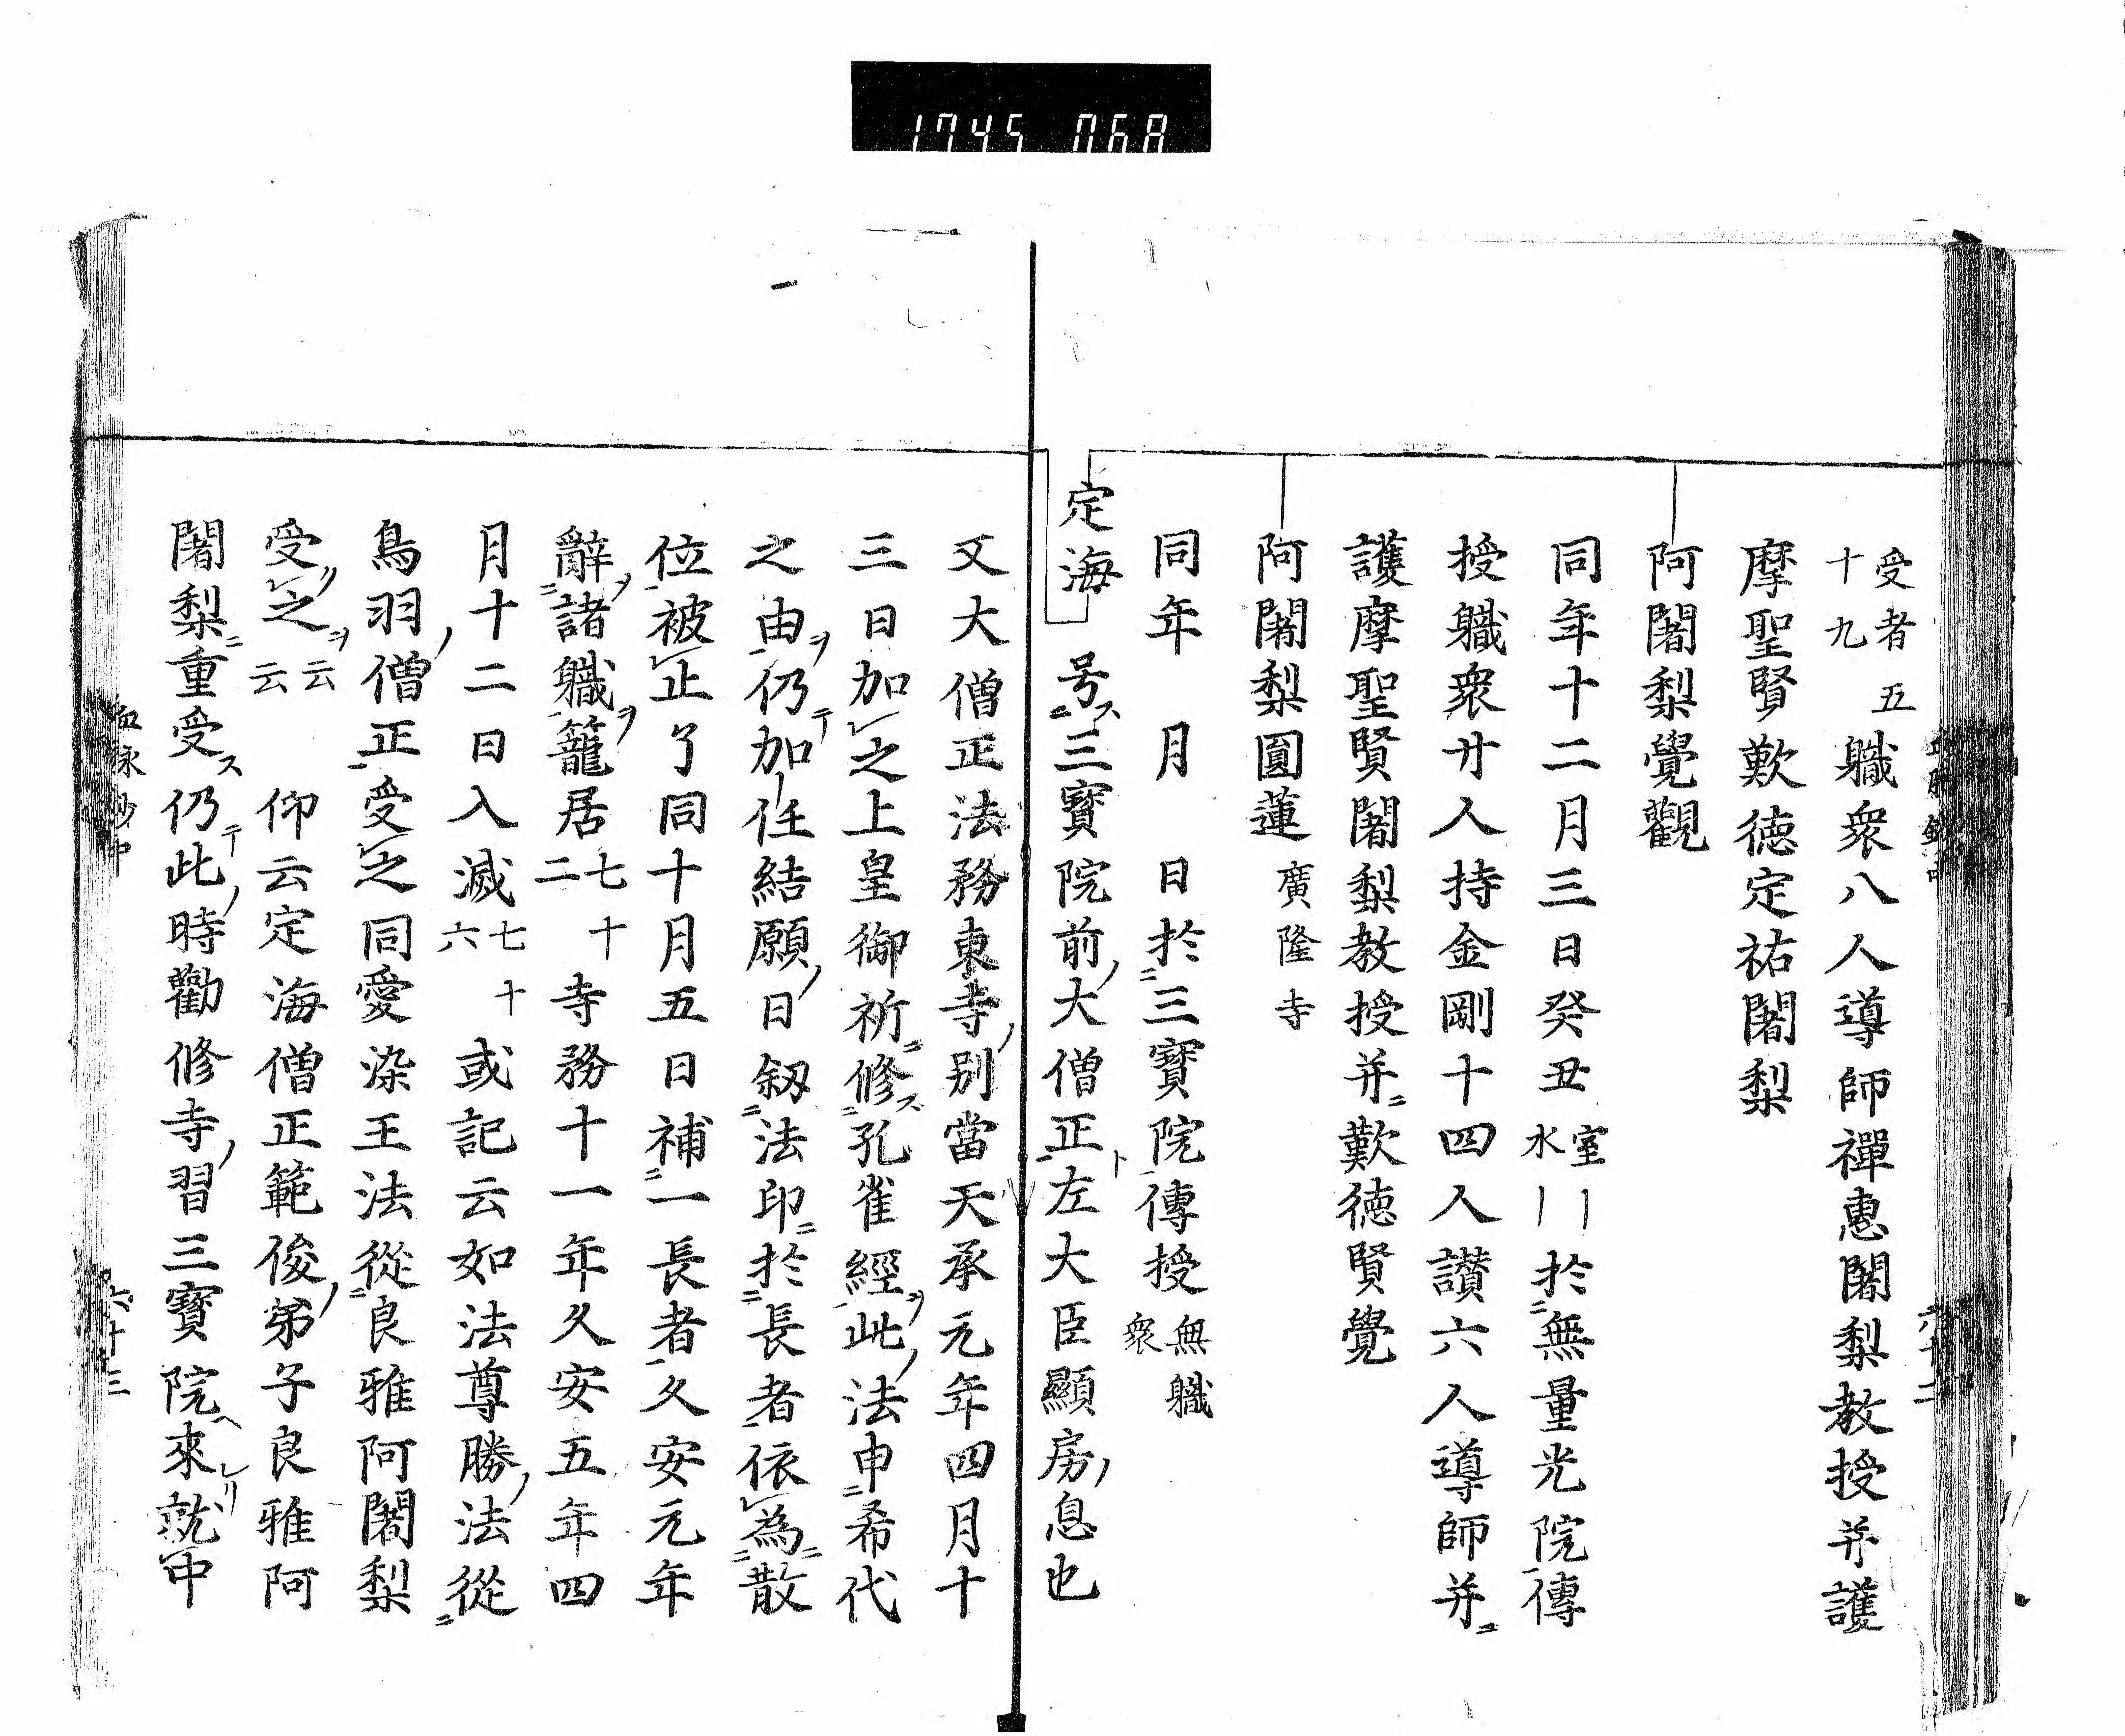 1745 068
受者五十九 職衆八人導師禪惠闍梨教授并護
摩聖賢歎德定祐闍梨
阿闍梨覺觀
同年十二月三日癸丑室水〡〡於無量光院傳
授職衆廿人持金剛十四人讃六人導師并ニ
護摩聖賢闍梨教授并ニ歎德賢覺
阿闍梨圓蓮廣隆寺
同年 月 日於三寶院傳授無職衆
定海 号ス三寶院前ノ大僧正ト左大臣顯房ノ息也
又大僧正法務東寺ノ別當天承元年四月十
三日加之上皇御祈ニ修ス孔雀經ヲ此ノ法申ニ希代
之由ヲ仍テ加任結願ノ日叙ニ法印ニ於長者依為ニ散
位被止了同十月五日補一長者久安元年
辭ヲ諸職ヲ籠居七十二 寺務十一年久安五年四
月十二日入滅七十六 或記云如法尊勝ノ法從
鳥羽ノ僧正受之同愛染王法從良雅阿闍梨
受リ之ヲ云云 仰云定海僧正範俊ノ弟子良雅阿
闍梨ニ重受ス仍テ此ノ時勸修寺ノ習三寶院ヘ來レリ就中
血脉鈔中 六十二
血脉鈔中 六十三